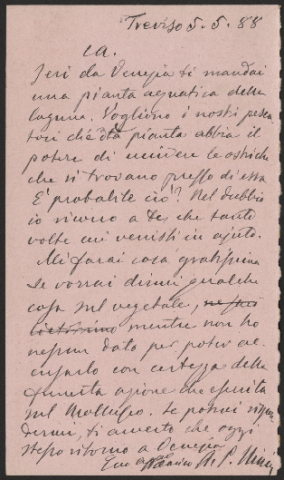 Treviso 5-5.88
ca.
Jeri da Venezia ti mandai
una pianta aquatica della
laguna. Vogliono i nostri pesca
tori che d.ta pianta abbia il
potere di uccidere le ostriche
che si trovano presso di essa
È probabile ciò? Nel dubbio
io ricorro a te, che tante
volte mi venisti in ajuto.
Mi farai cosa gratissima
se vorrai dirmi qualche
cosa sul vegetale, mentre non ho
nessun dato per poter ac
cusarlo con certezza della
funesta azione che esercita
sul Mollusco. Se potrai rispon
dermi, ti avverto che oggi
stesso ritorno a Venezia
A. P. Ninni